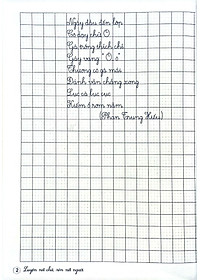 Ngày đầu đến lớp
Cô dạy chữ O
Gà trống thích chí
Gáy vang "Ò, ó"
Thương cô gà mái
Đánh vần chẳng xong
Lục cà lục cục
Kiếm ổ rơm nằm
(Phan Trung Hiếu)
2 Luyện nét chữ, rèn nết người